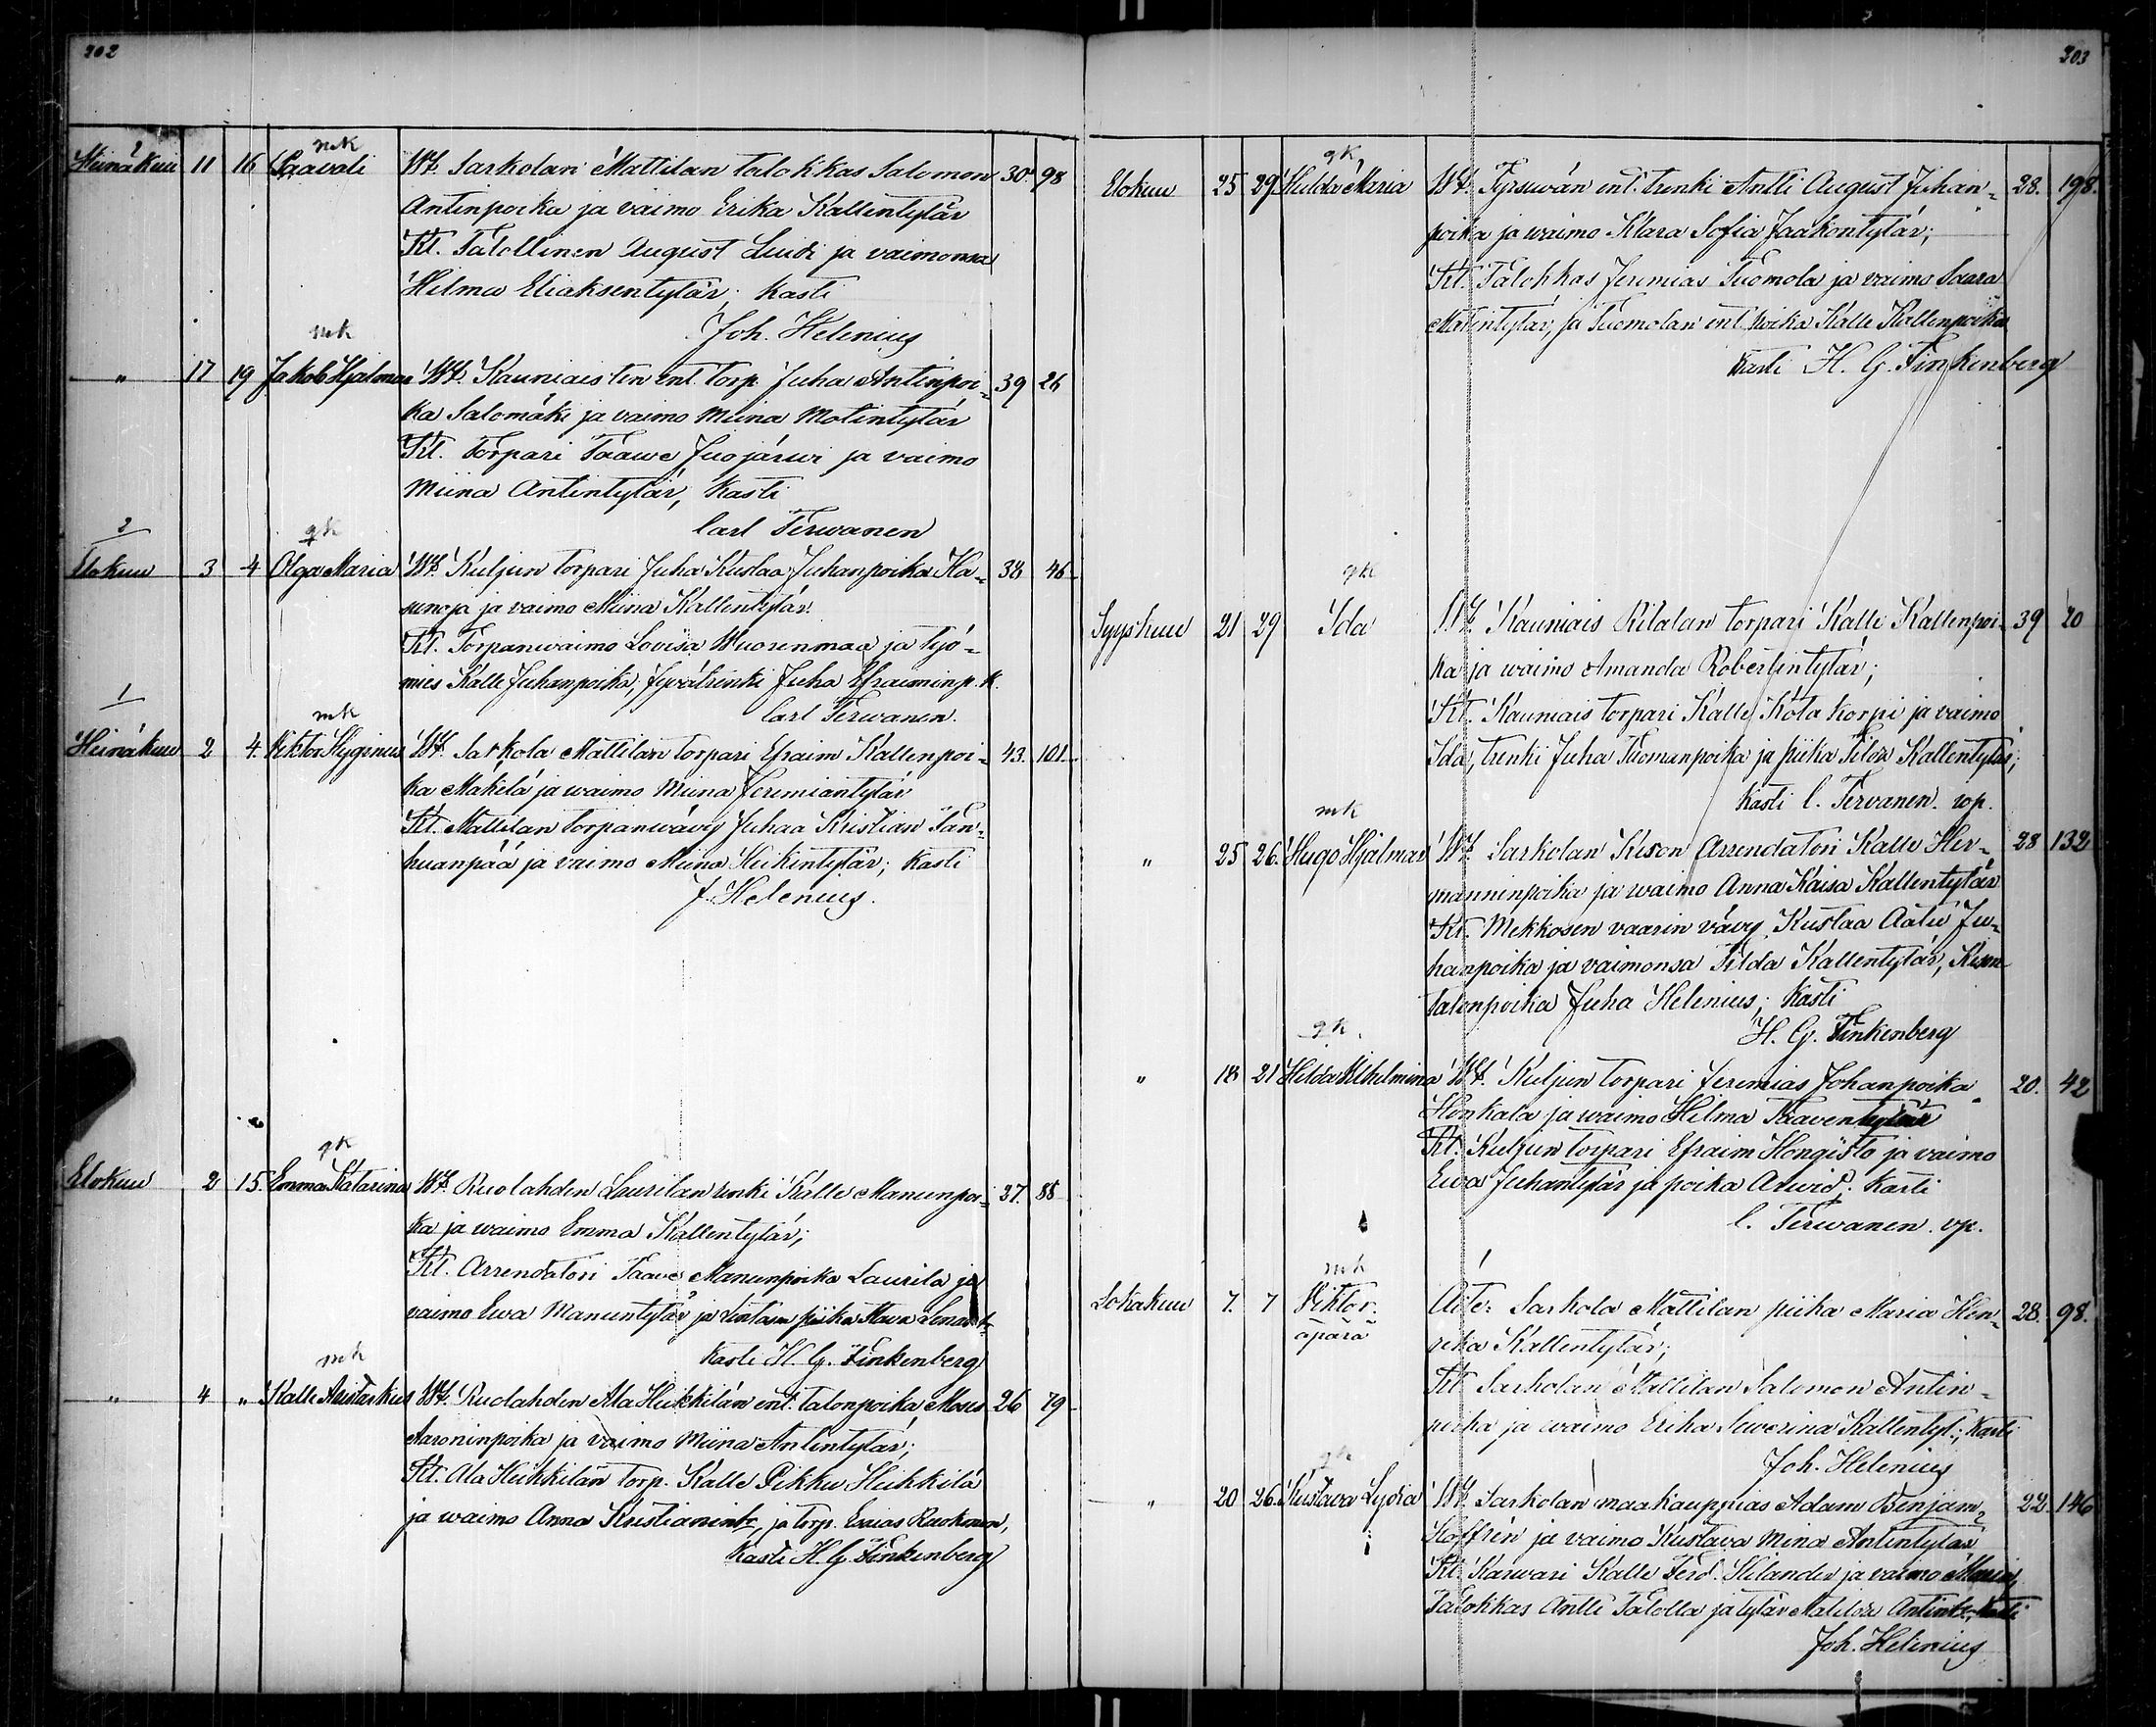 202
mk
Heinäkuu 11 16 Paavali Wh. Sarkolan Mattilan talokkas Salomon 30. 98
Antinpoika ja vaimo Erika Kallentytär
Kt. Talollinen August Luidi ja vaimonsa
Hilma Eliaksentytär, Kasti
Joh. Helenius
mk
" 17 19 Jakob Hjalmar Wh. Kauniaisten ent. torp. Juha Antinpoi- 39 26
ka Salomäki ja vaimo Miina Matintytär
Kt. Torpari Taawe Juojärwi ja vaimo
Miina Antintytär, Kasti
Carl Terwanen
2
gk
Elokuu 3 4 Olga Maria Wh. Kuljun torpari Juha Kustaa Juhanpoika Ha- 38 46
sunoja ja vaimo Miina Kallentytär.
Kt. Torpanwaimo Lovisa Wuorenmaa ja työ-
mies Kalle Juhanpoika, Jyvätrenki Juha Efraiminp. K.
Carl Terwanen.
1
mk
Heinäkuu 2 4. Viktor Hyginus Wh. Sarkola Mattilan torpari Efraim Kallenpoi- 43. 101
ka Mäkelä ja waimo Miina Jeremiantytär
Kt. Mattilan torpanwävy Juhaa Kristian Tan-
huanpää ja vaimo Miina Heikintytär; Kasti
J. Helenius.
gk
Elokuu 2 15. Emma Katarina Wh. Ruolahden Laurilan renki Kalle Manunpoi- 37. 88
ka ja waimo Emma Kallentytär;
Kt. Arrendatori Taave Manunpoika Laurila ja
vaimo Ewa Manuntytär ja piika
Kasti H. G. Finkenberg
mk
" 4 " Kalle Aristarkus Wh. Ruolahden Ala Heikkilän ent. talonpoika Moses 26 79
Aaroninpoika ja vaimo Miina Antintytär;
Kt. Ala Heikkilän torp. Kalle Pikku Heikkilä
ja waimo Anna Kristianintr, ja torp. Esaias
Kasti H. G. Finkenberg
203
gk
Elokuu 25 29 Hilda Maria Wh. Tyrswän ent. trenki Antti August Juhan- 28. 198.
poika ja waimo Klara Sofia Jaakontytär;
Kt. Talokkas Jeremias Tuomola ja vaimo Saara
Matintytär, ja Tuomolan ent. Poika Kalle Kallenpoika
Kasti H. G. Finkenberg
gk
Syyskuu 21 29 Ida Wh. Kauniais Rilalan torpari Kalle Kallenpoi- 39 20
ka ja waimo Amanda Robertintytär;
Kt. Kauniais torpari Kalle Kota korpi ja vaimo
Ida, trenki Juha Tuomanpoika ja piika Kallentytär;
Kasti C. Tervanen. vp.
mk
" 25 26. Hugo Hjalmar Wh. Sarkolan Kison Arrendatori Kalle Her- 28 132
manninpoika ja waimo Anna Kaisa Kallentytär
Kt. Mekkosen vaarin vävy Kustaa Aatu Ju-
hanpoika ja vaimonsa Tilda Kallentytär, Kison
talonpoika Juha Helenius; Kasti
H. G. Finkenberg
gk.
" 18 21 Hilda Wilhelmina Wh. Kuljun torpari Jeremias Johanpoika 20. 42
Honkala ja waimo Hilma Taaventytär
Kt. Kuljun torpari Efraim Hongisto ja vaimo
Ewa Juhantytär ja poika Arwid. Kasti
C. Terwanen. vp.
mk
Lokakuu 7. 7 Viktor. Äite: Sarkola Mattilan piika Maria Hen- 28. 98.
äpärä rika Kallentytär;
Kt Sarkolan Mattilan Salomon Antin-
poika ja waimo Erika Sewerina Kallentyt.; Kasti
Joh. Helenius
gk
" 20 26. Kustava Lydia Wh. Sarkolan maakauppias Adam Benjam. 22. 146
Stoffrén ja vaimo Kustava Mina Antintytär
Kt. Karwari Kalle Ferd. Hilander ja vaimo Maria,
Talokkas Antti Talolla ja tytär Matilda Antintr. Kasti
Joh. Helenius